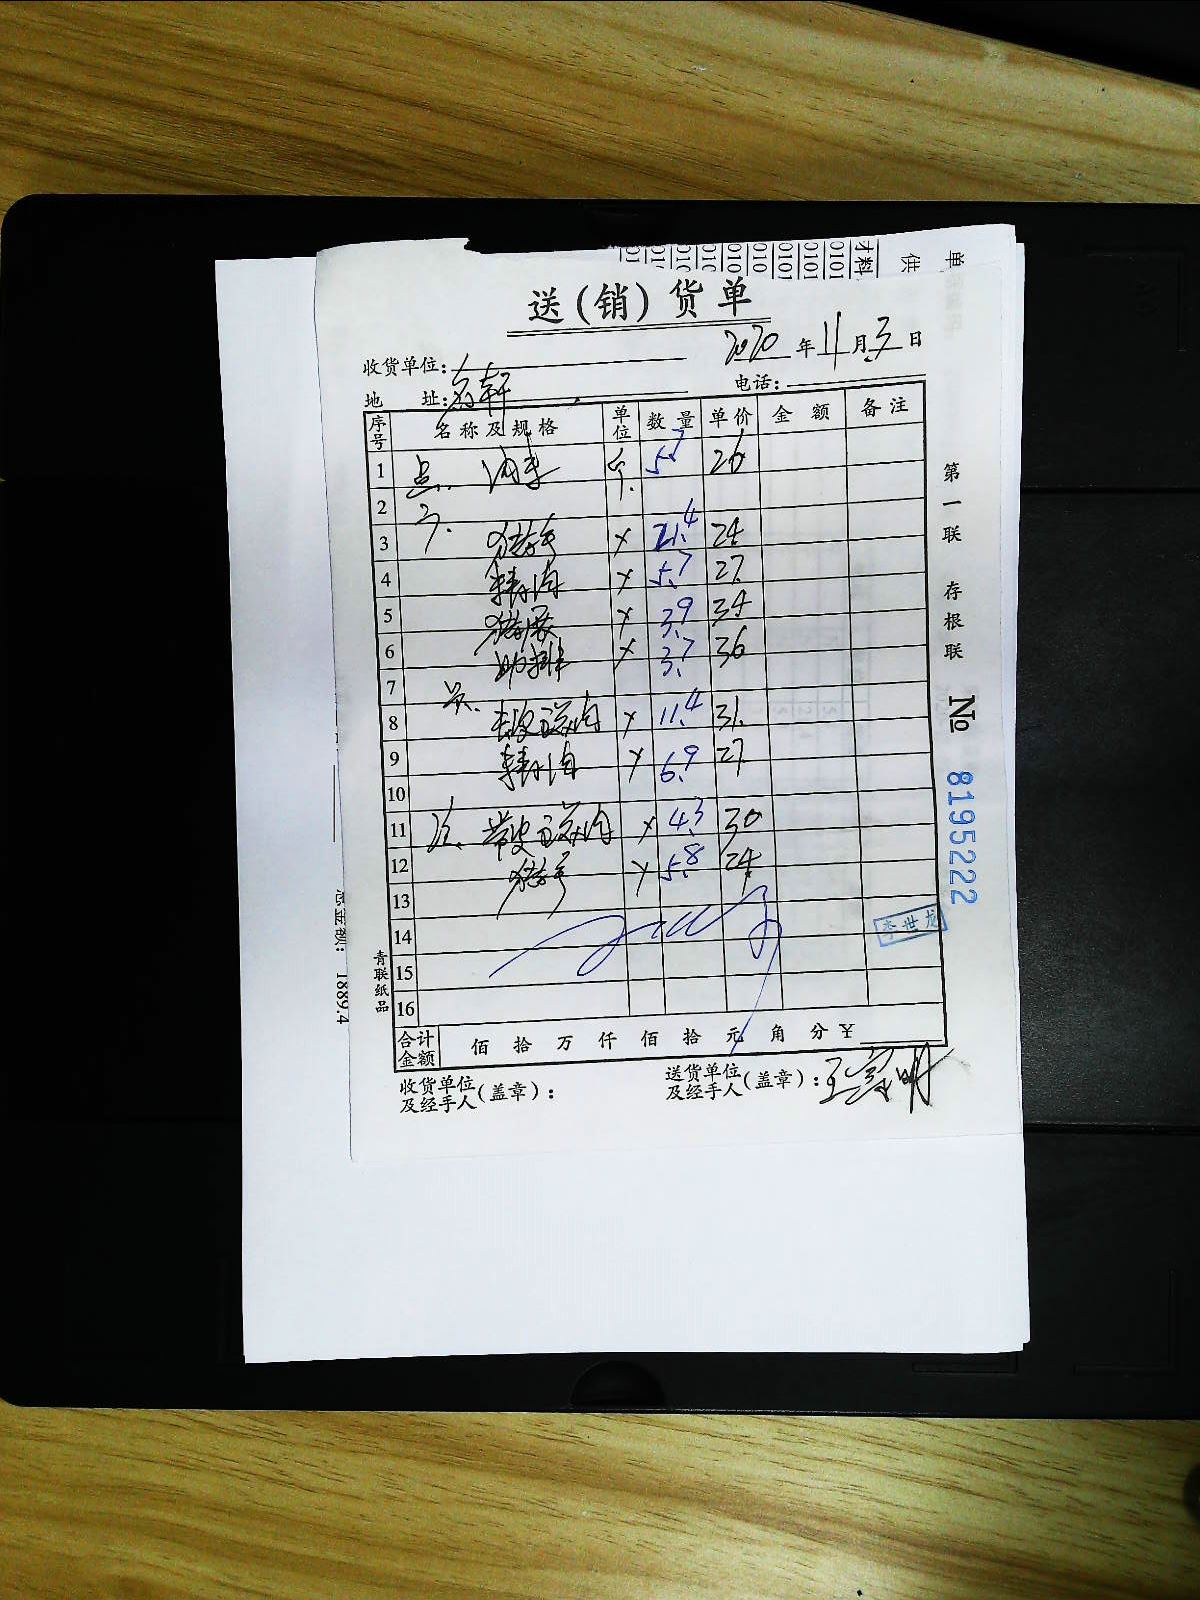 材料
单
供
送(销)货单
2020年11月3日
收货单位:
地 址:
电话:
序号 名称及规格 单位 数量 单价 金额 备注
1 5.7 26
2
3 猪手 21.4 24
4 精肉 5.7 27
5 猪展 3.9 34
6 肋排 3.7 36
7
8 去皮五花肉 11.4 31
9 精肉 6.9 27
10
11 带皮五花肉 4.3 30
12 猪手 5.8 24
13
14
15
16
合计金额 佰 拾 万 仟 佰 拾 元 角 分 ¥
收货单位及经手人(盖章):
送货单位及经手人(盖章):
第一联 存根联
№ 8195222
李世龙
青联纸品
总金额: 1889.4